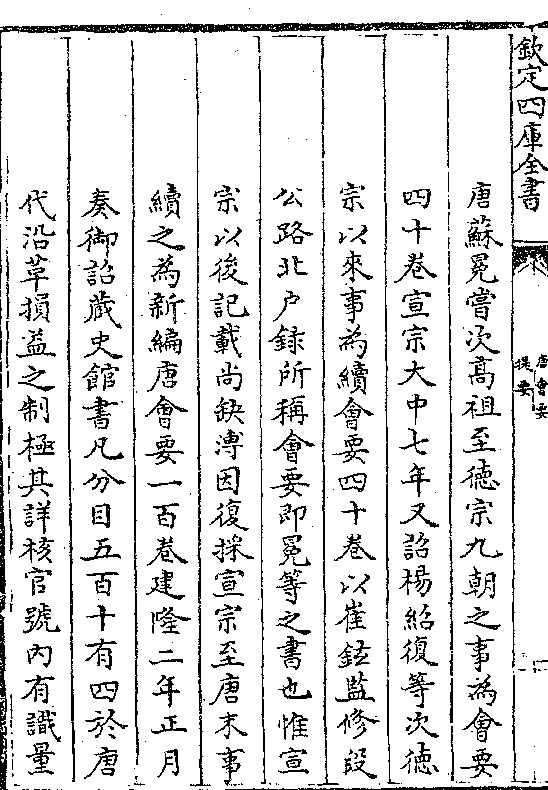 欽定四庫全書
唐會要
提要
一
唐蘇冕嘗次髙祖至徳宗九朝之事為會要
四十巻宣宗大中七年又詔楊紹復等次徳
宗以來事為續會要四十巻以崔鉉監修段
公路北户録所稱會要即冕等之書也惟宣
宗以後記載尚缺溥因復採宣宗至唐末事
續之為新編唐會要一百巻建隆二年正月
奏御詔蔵史館書凡分目五百十有四於唐
代沿革損益之制極其詳核官號内有識量